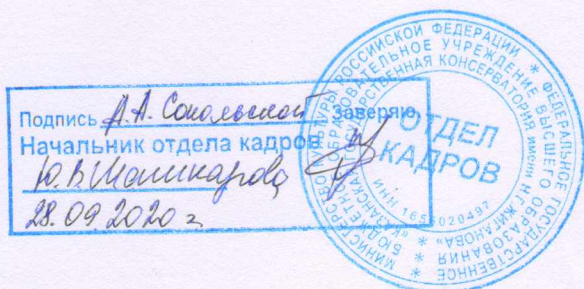 Подпись А.А. Сокольской заверяю.
Начальник отдела кадров
Ю.В.Машкарова
28.09.2020 г
МИНИСТЕРСТВО КУЛЬТУРЫ РОССИЙСКОЙ ФЕДЕРАЦИИ * ФЕДЕРАЛЬНОЕ ГОСУДАРСТВЕННОЕ
БЮДЖЕТНОЕ ОБРАЗОВАТЕЛЬНОЕ УЧРЕЖДЕНИЕ ВЫСШЕГО ОБРАЗОВАНИЯ *
«КАЗАНСКАЯ ГОСУДАРСТВЕННАЯ КОНСЕРВАТОРИЯ имени Н.Г.ЖИГАНОВА» *
ИНН
ОТДЕЛ
КАДРОВ